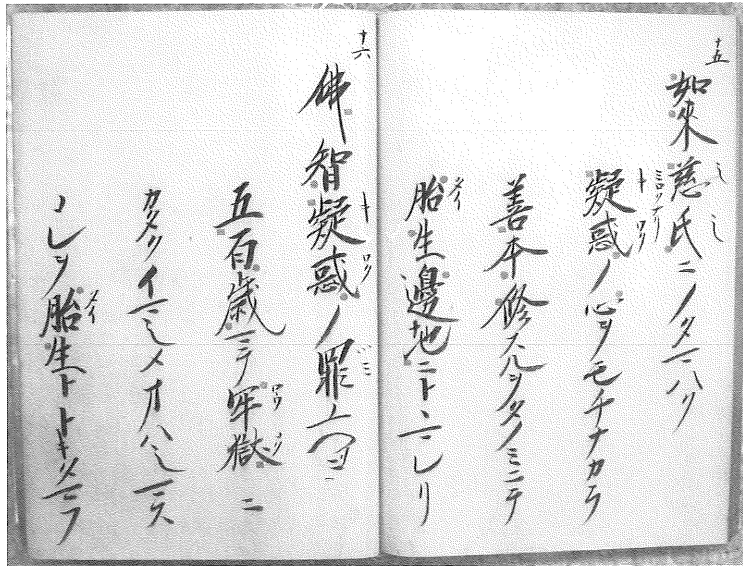 十五
如來慈氏ニノタマハク
疑惑ノ心ヲモチナカラ
善本修スルヲタノミニテ
胎生邊地ニトヽマレリ
十六
佛智疑惑ノ罪ユヘニ
五百歳マテ牢獄ニ
カタクイマシメオハシマス
コレヲ胎生トトキタマフ